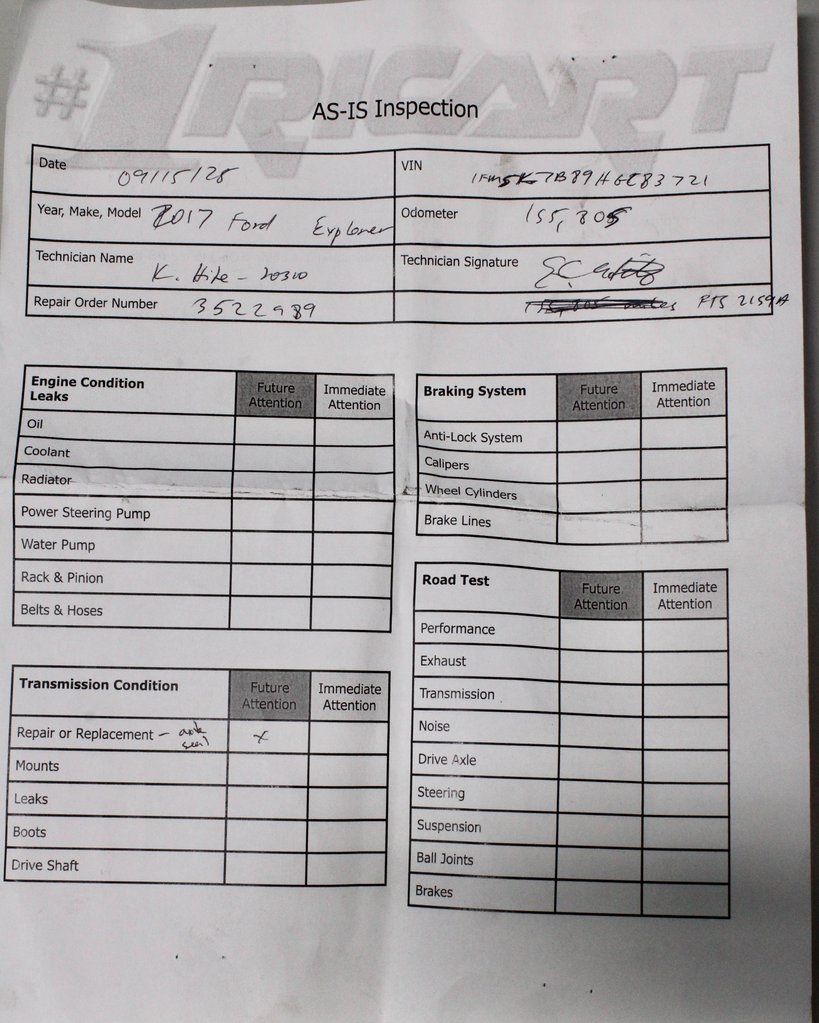 #1 RICART
AS-IS Inspection
Date 09/15/25
VIN
Year, Make, Model 2017 Ford Explorer
Odometer 155,805
Technician Name K. Hite - 20310
Technician Signature
Repair Order Number 3522989
PTS 2159A
Engine Condition
Leaks
Future
Attention
Immediate
Attention
Oil
Coolant
Radiator
Power Steering Pump
Water Pump
Rack & Pinion
Belts & Hoses
Braking System
Future
Attention
Immediate
Attention
Anti-Lock System
Calipers
Wheel Cylinders
Brake Lines
Road Test
Future
Attention
Immediate
Attention
Performance
Exhaust
Transmission
Noise
Drive Axle
Steering
Suspension
Ball Joints
Brakes
Transmission Condition
Future
Attention
Immediate
Attention
Repair or Replacement - axle
seal
x
Mounts
Leaks
Boots
Drive Shaft